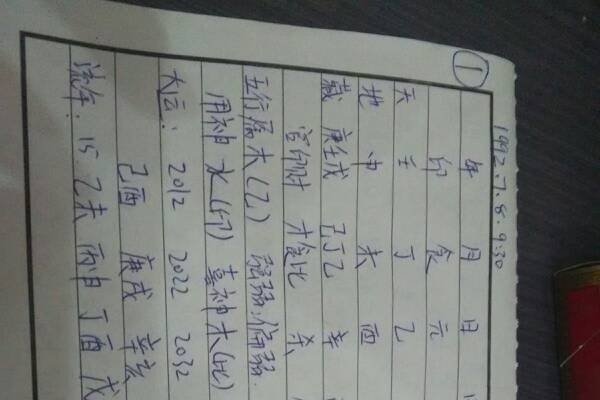 1992.7.8.9:30
①
年 月 日
印 食 元
天 壬 丁 乙
地 申 未 酉
藏 庚壬戊 己丁乙 辛
官印财 才食比 杀
五行属木(乙) 强弱:偏弱.
用神 水(印) 喜神木(比)
大运: 2012 2022 2032
己酉 庚戌 辛亥
流年: 15 乙未 丙申 丁酉 戊